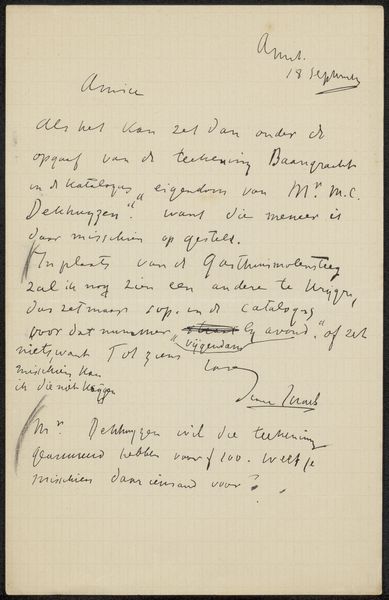 Amst.
18 September
Amice
Als het kan zet dan onder de
opgaaf van de teekening Baangracht
in de katalogus "eigendom van Mr. M.C.
Dekhuyzen". want die meneer is
daar misschien op gesteld.
In plaats van de Gasthuismolensteeg
zal ik nog zien een andere te krijgen,
dus zet maar s.v.p. in de catalogus
voor dat nummer "bij avond." of zet
"vijgendam
niets want Tot ziens
misschien kan
ik die niet krijgen
Mr. Dekhuyzen wil die teekening
geassureerd hebben voor f 100. Weet je
misschien daar iemand voor?